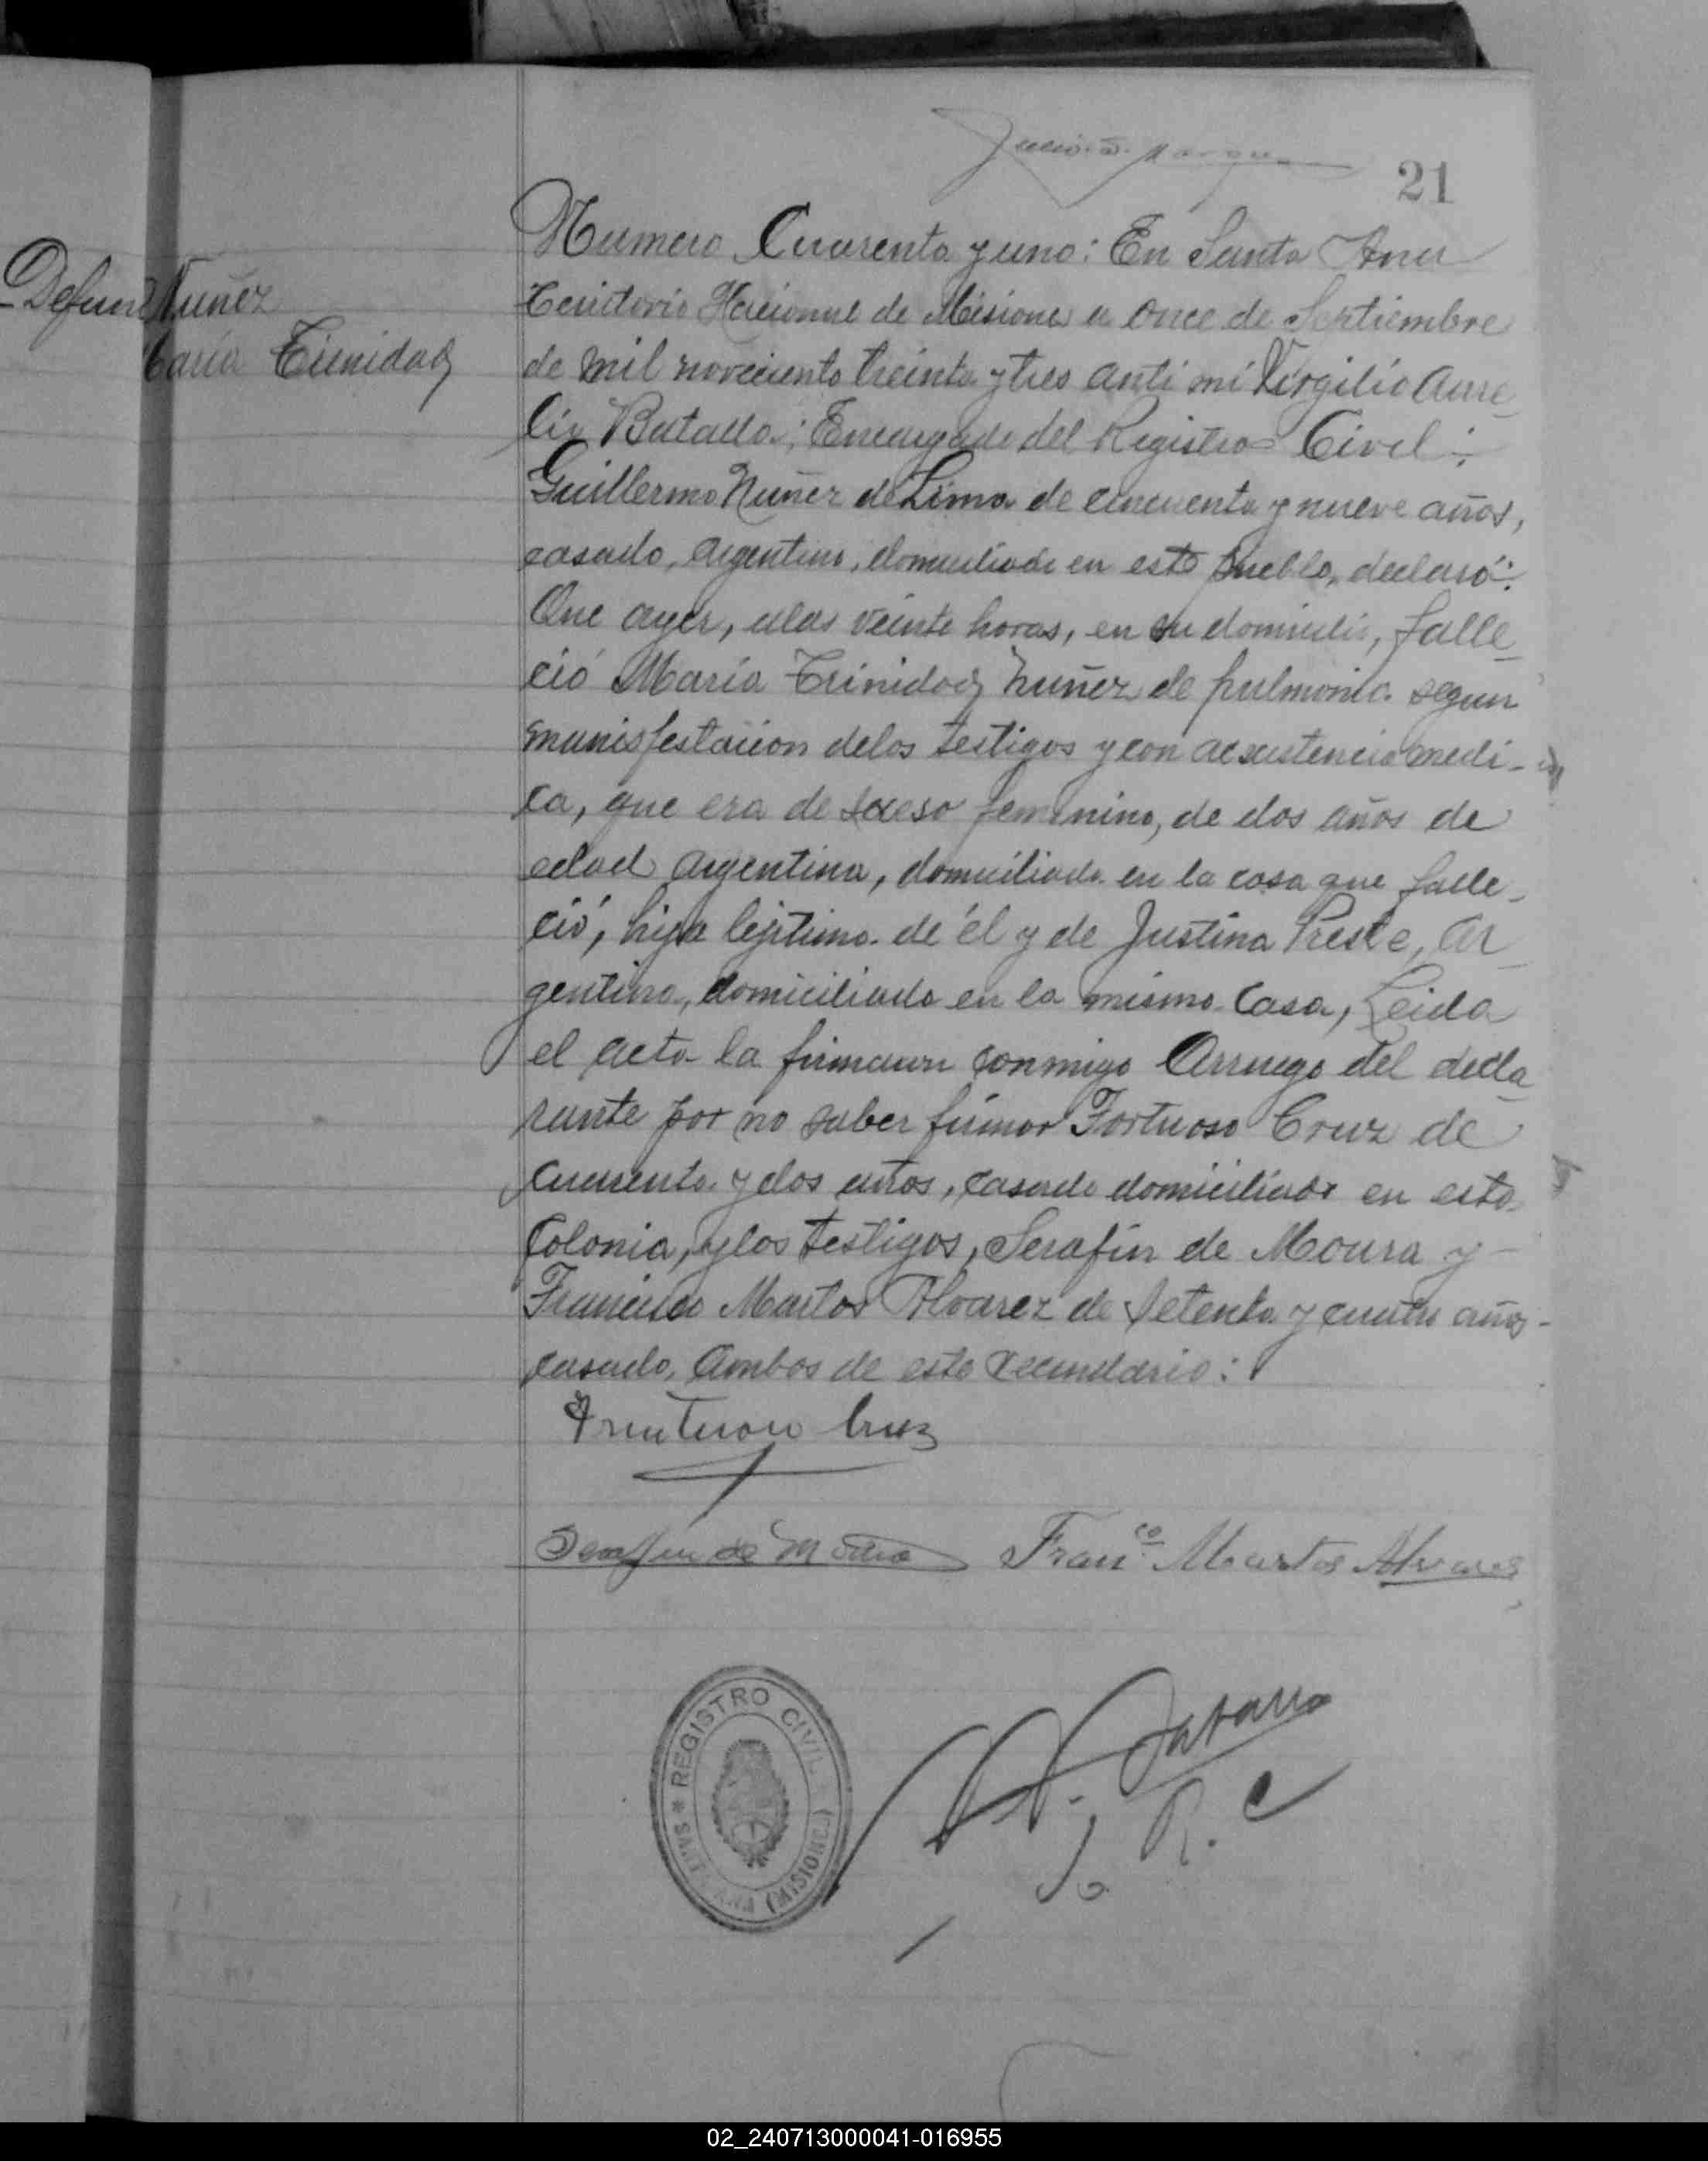 21
Defun Nuñez
María Trinidad
Numero Cuarenta y uno: En Santa Ana
Territorio Nacional de Misiones a once de Septiembre
de mil noveciento treinta y tres anti mi Virgilio Aure_
lio Batalla; Encargado del Registro Civil;
Guillermo Nuñez de Lima de cincuenta y nueve años,
casado, argentino, domiciliado en este pueblo, declaró:
Que ayer, a las veinte horas, en su domicilio, falle_
ció María Trinidad Nuñez de pulmonia segun
manisfestacion de los testigos y con acsistencia medi-
ca, que era de secso femenino, de dos años de
edad argentina, domiciliada en la casa que falle_
ció, hija lejitima de él y de Justina Preste, Ar_
gentina, domiciliada en la misma Casa, Leida
el acta la firmaron conmigo Arruego del decla_
rante por no saber firmar Fortuoso Cruz de
cuarenta y dos años, casado domiciliado en esta
Colonia, y los testigos, Serafin de Moura y
Francisco Martos Alvarez de setenta y cuatro años-
casado, Ambos de este vecindario:
Frutuoso Cruz
Serafin de Moura Fran.co Martos Alvares
REGISTRO CIVIL
* SANTA ANA (MISIONES)
J. R. C
02_240713000041-016955